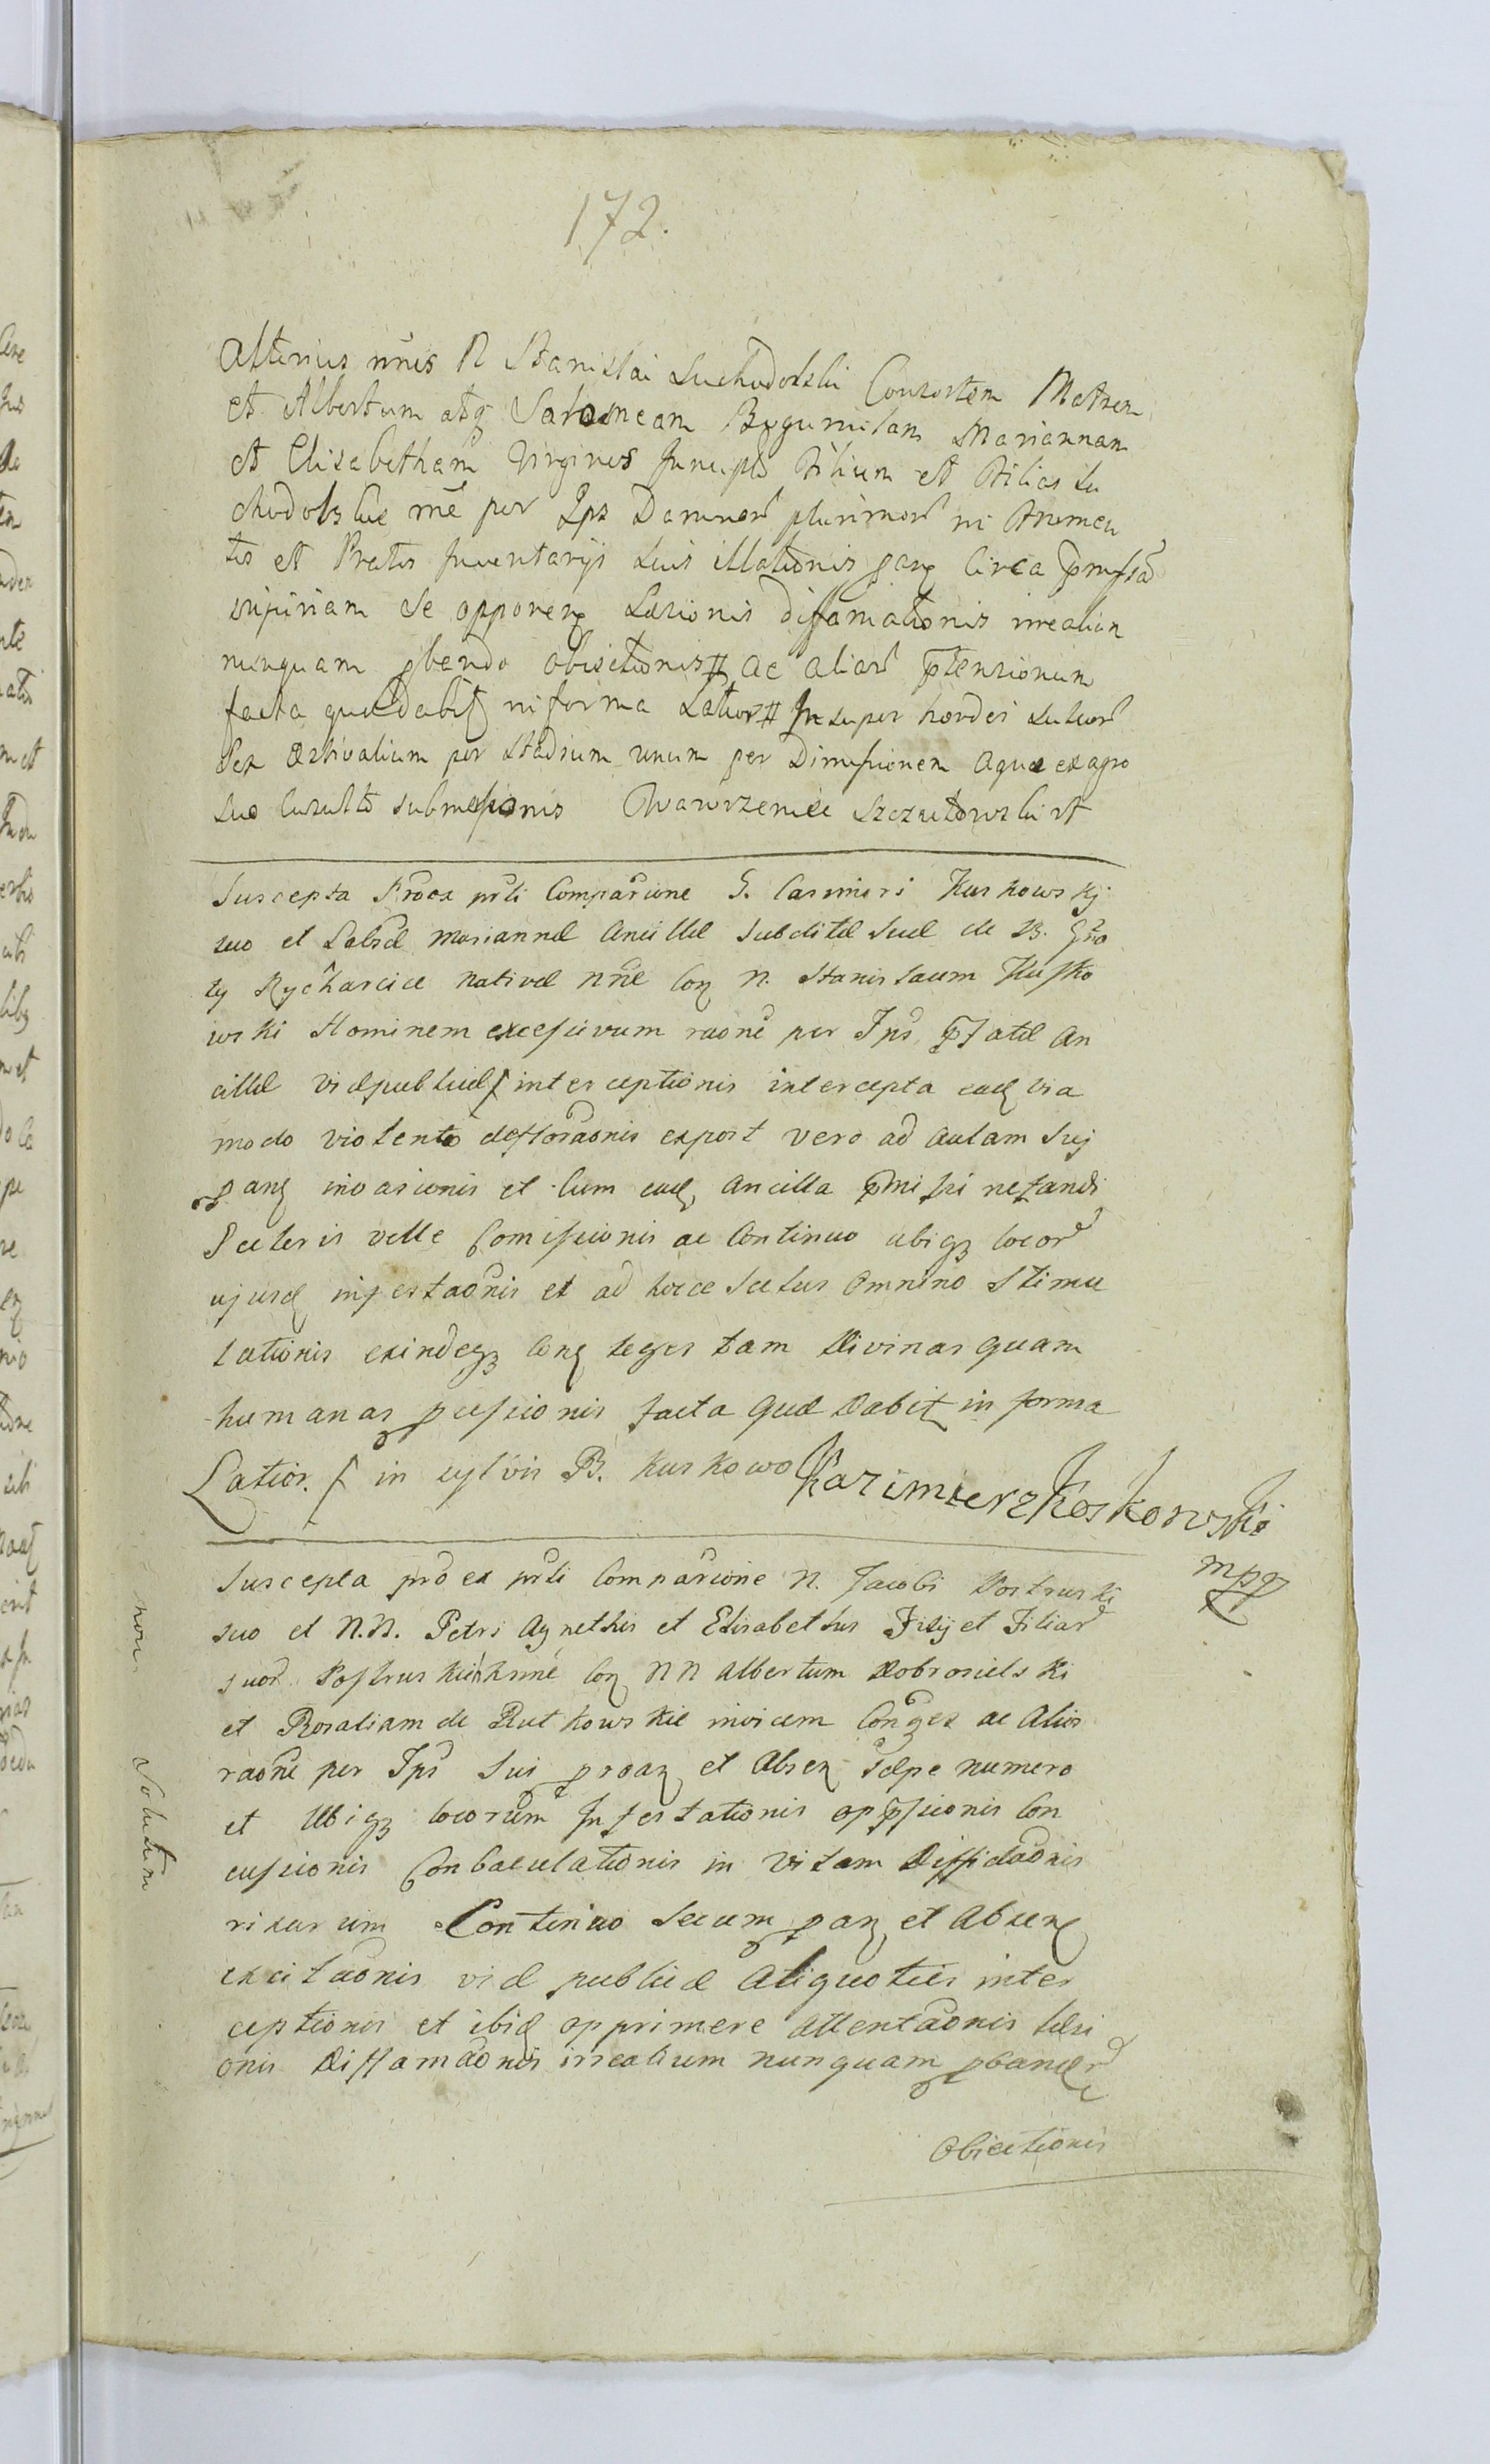 172.
Alterius nnis N Stanislai Suchodolski Consortem Matrem
et Albertum atq Salomeam Bogumilam Mariannam
et Elisabetham Virgines Filium et Filias Su
chodolskie rne per Ips Damnor plurimor in Frumen
tis et Pratis Inventarijs suis illationis circa pmissa
injuriam se opponen Læsionis diffamationis irrealium
nunquam pbando obiectionis # ac aliar ptensionum
facta quæ dabit in forma Latior # Insuper hordei
sex æstivalium per Stadium unum per Dimissionem aquæ ex agro
suo submersionis Wawrzeniec Szczutowski
Suscepta Proex prli Comparicione G. Casimiri Kuskowskij
suo et Labsæ Mariannæ Ancillæ subditæ suæ de B. Gro
ty Rycharcice nativæ nnæ Con N. Stanislaum Kusko
wski Hominem excessivum raone per Ips pfatæ An
cillæ viæ publicæ / interceptionis intercepta eaq via
modo violento defloraonis expost vero ad aulam suj
pang invasionis et Cum eadq ancilla pmissi nefandi
Sceleris velle Comissionis ac Continuo ubiq locor
ejusq infestaonis et ad hocce scelus Omnino Stimu
lationis exindeq Con leges tam Divinas quam
humanas pcessionis facta quæ dabit in forma
Latior. / in sylvis B. Kuskowo Kazimierz Koskowski
mpq
Suscepta pro ex prli Comparicione N. Jacobi Kostruski
suo et N.N. Petri Agnethis et Elisabethis Filij et Filiar
suor. Con NN Albertum Dobrosielski
et Rosaliam de Rutkowskie invicem Conges ac Alios
raone per Ips sui et Absen sæpe numero
et Ubiq locorum Infestationis oppssionis Con
cussionis Conbaculationis in Vitam Diffidaonis
rixarum Continuo secum pan et Absen
excitaonis viæ publicæ Aliquoties inter
ceptionis et ibiq opprimere attentaonis læsi
onis Diffamaonis irrealium nunquam pbander
Obiectionis
non Solutum